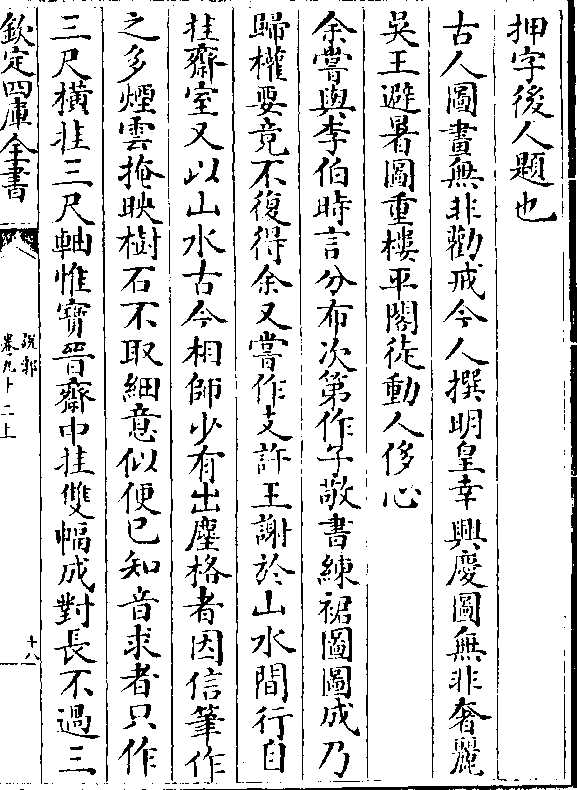 押字後人題也
古人圖畫無非勸戒今人撰明皇幸興慶圖無非奢麗
吳王避暑圖重樓平閣徒動人侈心
余嘗與李伯時言分布次第作子敬書練裙圖圖成乃
歸權要竟不復得余又嘗作支許王謝於山水間行自
挂齋室又以山水古今相師少有出塵格者因信筆作
之多煙雲掩映樹石不取細意似便已知音求者只作
三尺横挂三尺軸惟寶晉齋中挂雙幅成對長不過三
欽定四庫全書
說郛
卷九十二上
十八